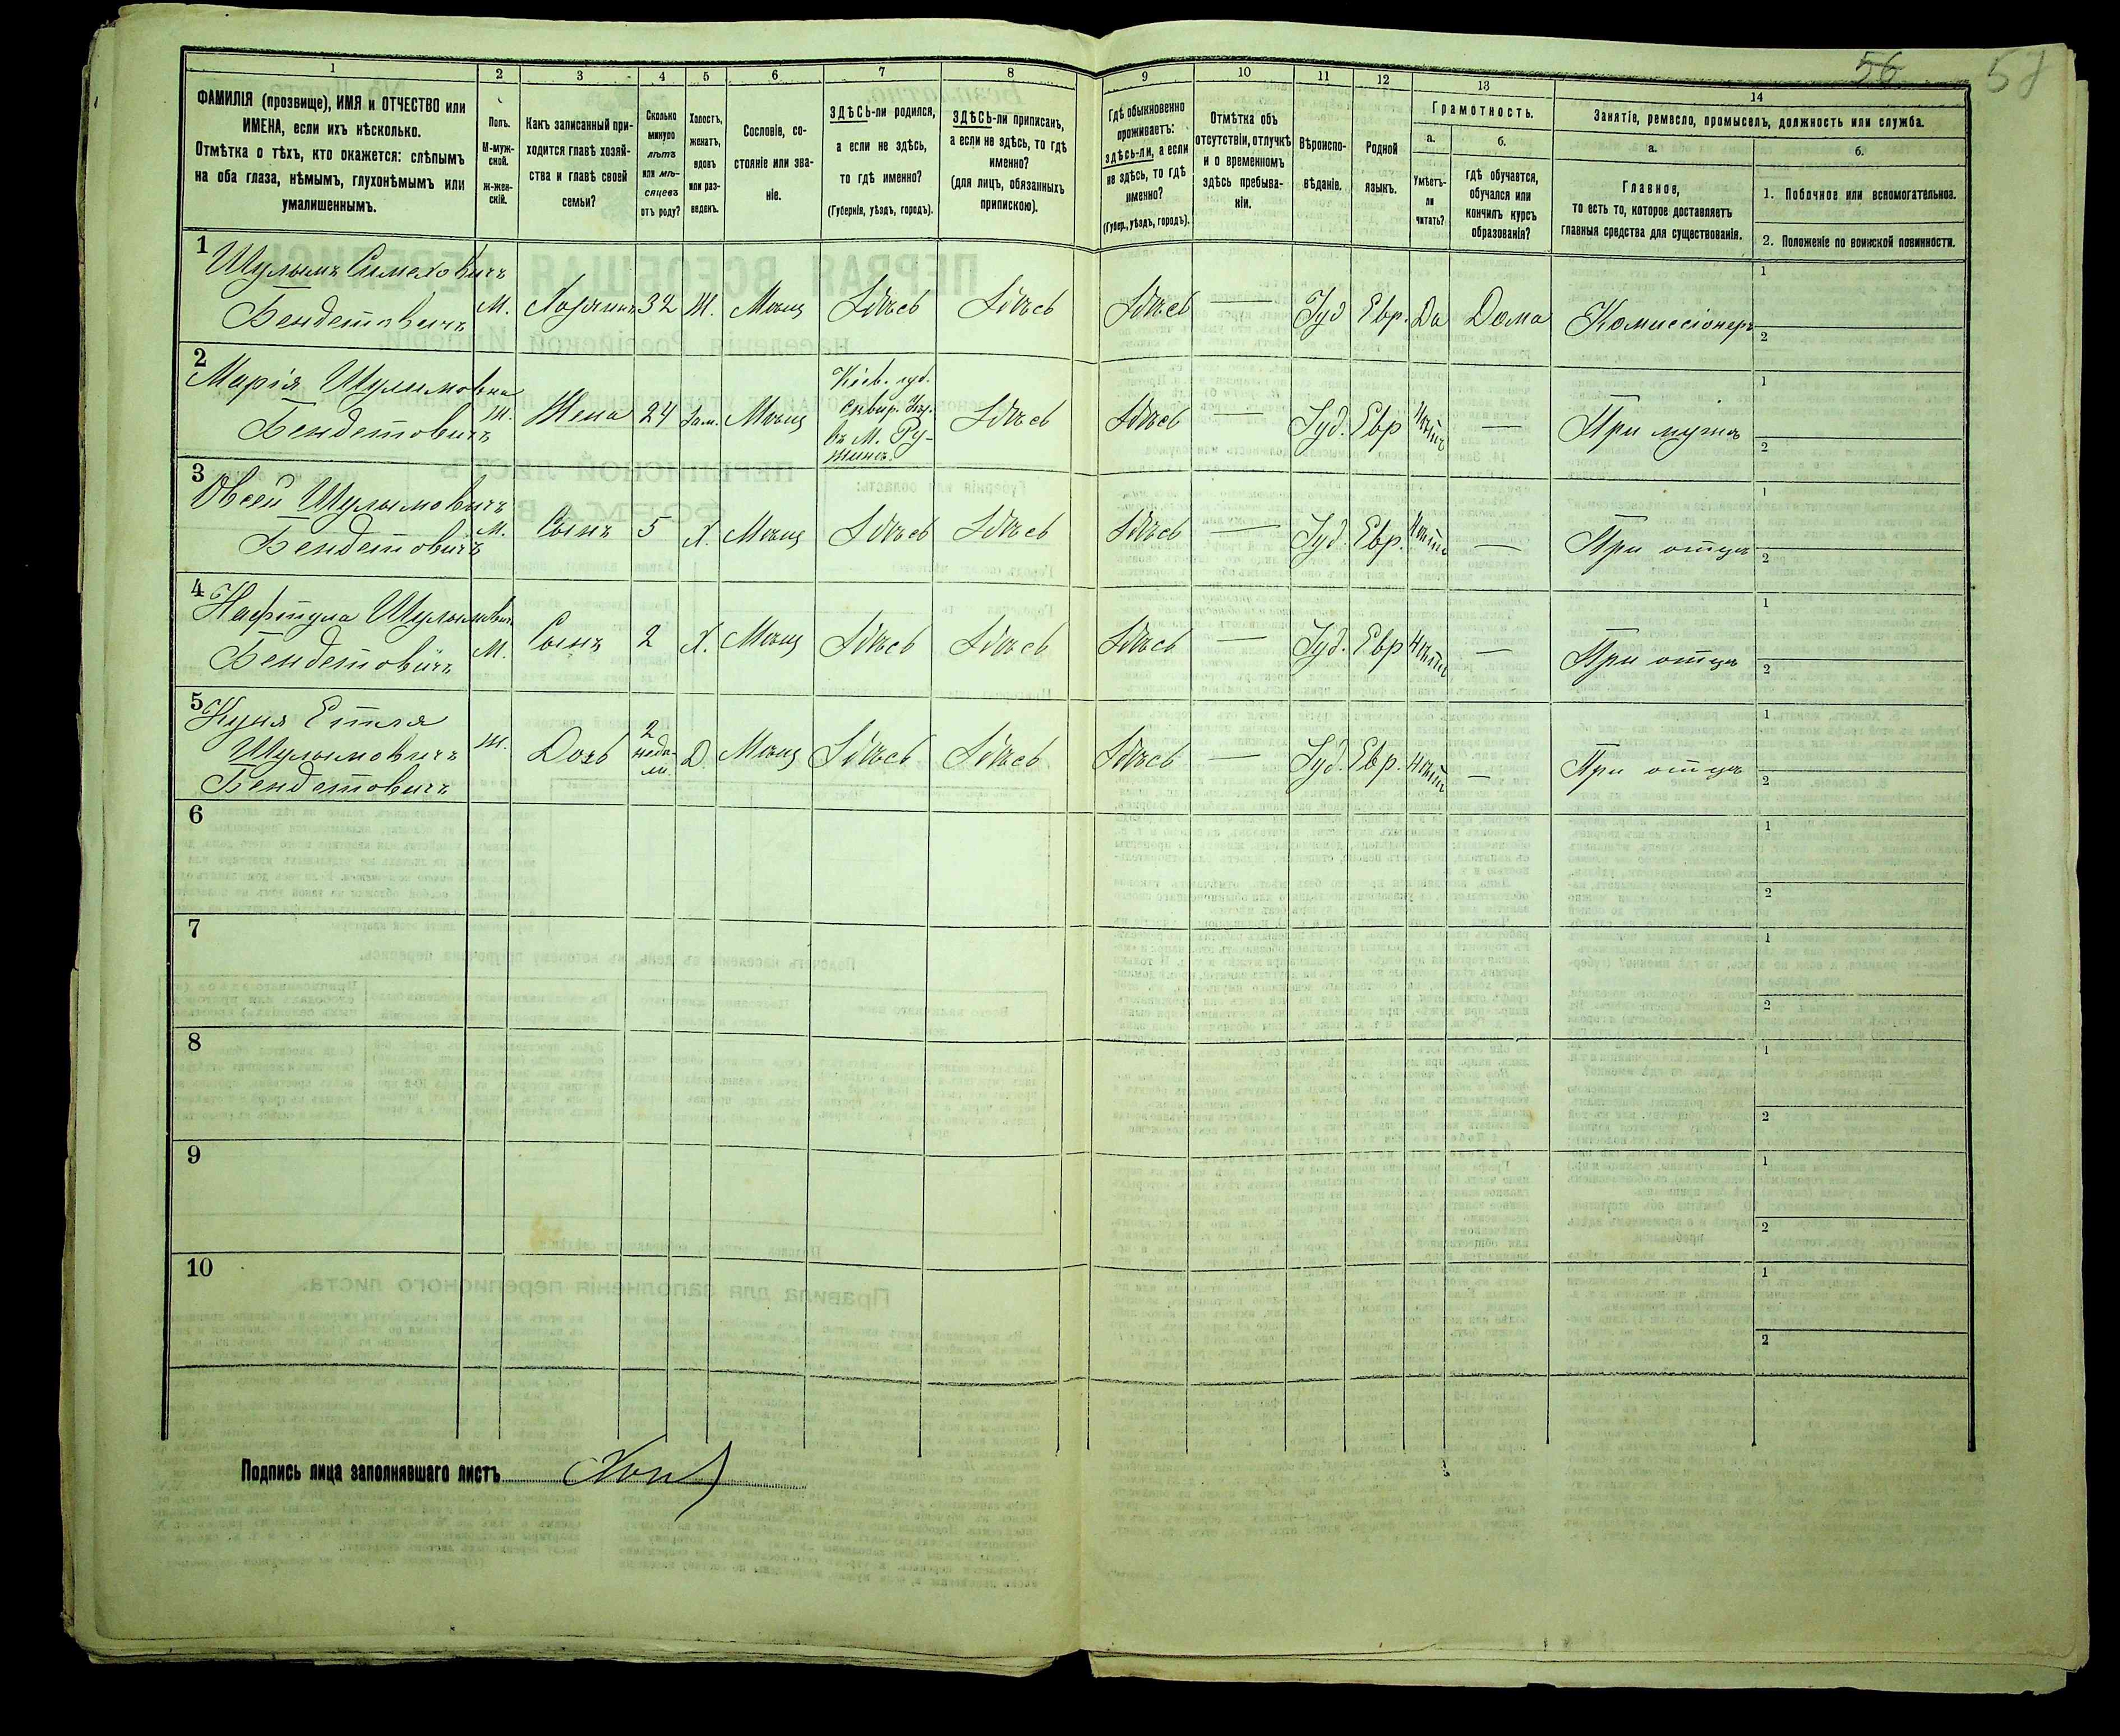 56 58
1 2 3 4 5 6 7 8 9 10 11 12 13 14
ФАМИЛІЯ (прозвище), ИМЯ и ОТЧЕСТВО или
ИМЕНА, если ихъ нѣсколько.
Отмѣтка о тѣхъ, кто окажется: слѣпымъ
на оба глаза, нѣмымъ, глухонѣмымъ или
умалишеннымъ.
Полъ.
М-муж-
ской.
ж-жен-
скій.
Какъ записанный при-
ходится главѣ хозяй-
ства и главѣ своей
семьи?
Сколько
минуло
лѣтъ
или мѣ-
сяцевъ
отъ роду?
Холостъ,
женатъ,
вдовъ
или раз-
веденъ.
Сословіе, со-
стояніе или зва-
ніе.
ЗДѢСЬ-ли родился,
а если не здѣсь,
то гдѣ именно?
(Губернія, уѣздъ, городъ).
ЗДѢСЬ-ли приписанъ,
а если не здѣсь, то гдѣ
именно?
(для лицъ, обязанныхъ
припискою).
Гдѣ обыкновенно
проживаетъ:
здѣсь-ли, а если
не здѣсь, то гдѣ
именно?
(Губер., уѣздъ, городъ).
Отмѣтка объ
отсутствіи, отлучкѣ
и о временномъ
здѣсь пребыва-
ніи.
Вѣроиспо-
вѣданіе.
Родной
языкъ.
Грамотность.
а. б.
Умѣетъ-
ли
читать?
гдѣ обучается,
обучался или
кончилъ курсъ
образованія?
Занятіе, ремесло, промыселъ, должность или служба.
а. б.
Главное,
то есть то, которое доставляетъ
главныя средства для существованія.
1. Побочное или вспомогательное.
2. Положеніе по воинской повинности.
1 Шулымъ Симеховичъ
Бендетовичъ М. Хозяинъ 32 Ж. Мѣщ Здѣсь Здѣсь Здѣсь — Іуд Евр. Да Дома Комиссіонеръ
1
2
2 Марія Шулимовна
Бендетовичъ Ж. Жена 24 Зам. Мѣщ
Кіев. губ.
Сквир. Уѣз.
въ М. Ру-
жинѣ.
Здѣсь Здѣсь — Іуд. Евр Нѣтъ — При мужѣ
1
2
3 Овсей Шулымовичъ
Бендетовичъ М. Сынъ 5 Х. Мѣщ Здѣсь Здѣсь Здѣсь — Іуд. Евр. Нѣтъ — При отцѣ
1
2
4 Нафтула Шулымович
Бендетовичъ М. Сынъ 2 Х. Мѣщ Здѣсь Здѣсь Здѣсь — Іуд. Евр Нѣтъ — При отцѣ
1
2
5 Куня Етля
Шулымовичъ
Бендетовичъ Ж. Дочь
2
недѣ-
ли.
Д. Мѣщ Здѣсь Здѣсь Здѣсь — Іуд. Евр. Нѣтъ — При отцѣ
1
2
6
1
2
7
1
2
8
1
2
9
1
2
10
1
2
Подпись лица заполнявшаго листъ